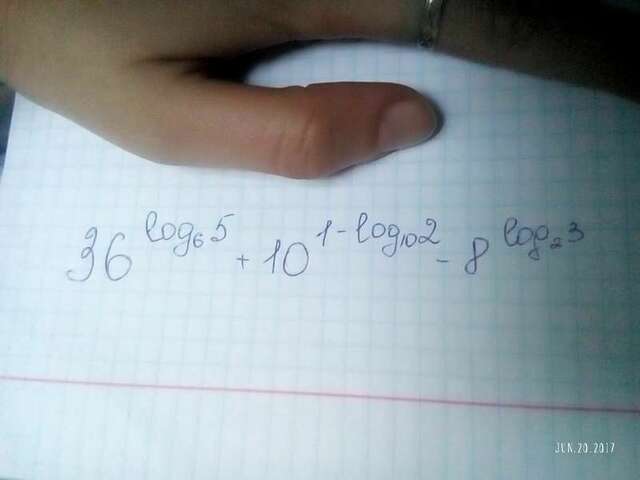 36^{log_6 5} + 10^{1 - log_{10} 2} - 8^{log_2 3}
JUN.20.2017